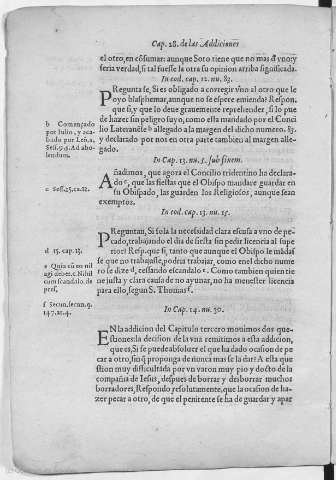 Cap. 28. de las Addiciones
el otro, en cõsumar: aunque Soto tiene que no mas đ vno: y
seria verdad, si tal fuesse la otra su opinion arriba significada.
In eod. cap. 12. nu. 83.
PRegunta se, Si es obligado a corregir vno al otro que le
oyo blasphemar, aunque no se espere emienda? Respon.
que si, y que lo deue grauemente reprehender, si lo pue
de hazer sin peligro suyo, como esta mandado por el Conci
lio Lateranẽse b allegado a la margen del dicho numero. 83.
y declarado por nos en otra parte tambien al margen alle-
gado.
b Comançado
por Iulio, y aca
bado por Leõ.2.
Sess.9.§. Ad abo-
lendum.
In Cap. 13. nu. 5. sub finem.
AÑadimos, que agora el Concilio tridentino ha declara-
do c, que las fiestas que el Obispo mandare guardar en
su Obispado, las guarden los Religiosos, aunque sean
exemptos.
c Sess.25.ca.12.
In eod. cap. 13. nu. 15.
PReguntan, Si sola la necessidad clara escusa a vno de pe-
cado, trabajando el dia de fiesta sin pedir licencia al supe
rior? Resp. que si, tanto que aunque el Obispo le mãdas
se que no trabajasse, podra trabajar, como en el dicho nume
ro se dize d, cessando escandalo e. Como tambien quien tie
ne justa y clara causa de no ayunar, no ha menester licencia
para ello, segun S. Thomas f.
d 15. cap. 13.
e Quia eũ eo nil
agi debet. c. Nihil
cum scandalo. de
præs.
f Secun. secun. q.
147. ar. 4.
In Cap. 14. nu. 30.
EN la addicion del Capitulo tercero mouimos dos que-
stiones: la decision de la vna remitimos a esta addicion,
que es, Si se puede absoluer el que ha dado ocasion de pe-
car a otro, sin q̃ proponga de nunca mas se la dar? A esta que
stion muy difficultada por vn varon muy pio y docto de la
compañia de Iesus, despues de borrar y desborrar muchos
borradores, Respondo resolutamente, que la ocasion de ha-
zer pecar a otro, de que el penitente se ha de guardar y apar